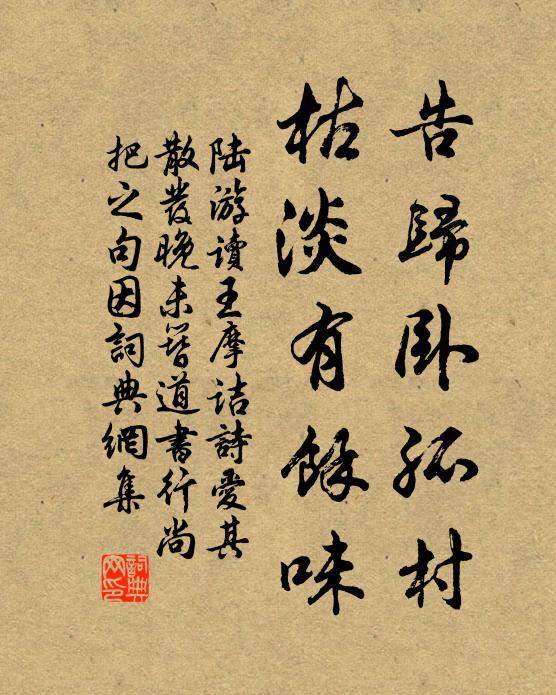 告歸臥孤村
枯淡有餘味
陆游讀王摩詰詩愛其
散發晚未簪道書行尚
把之句因詞典網集
詞典
网印